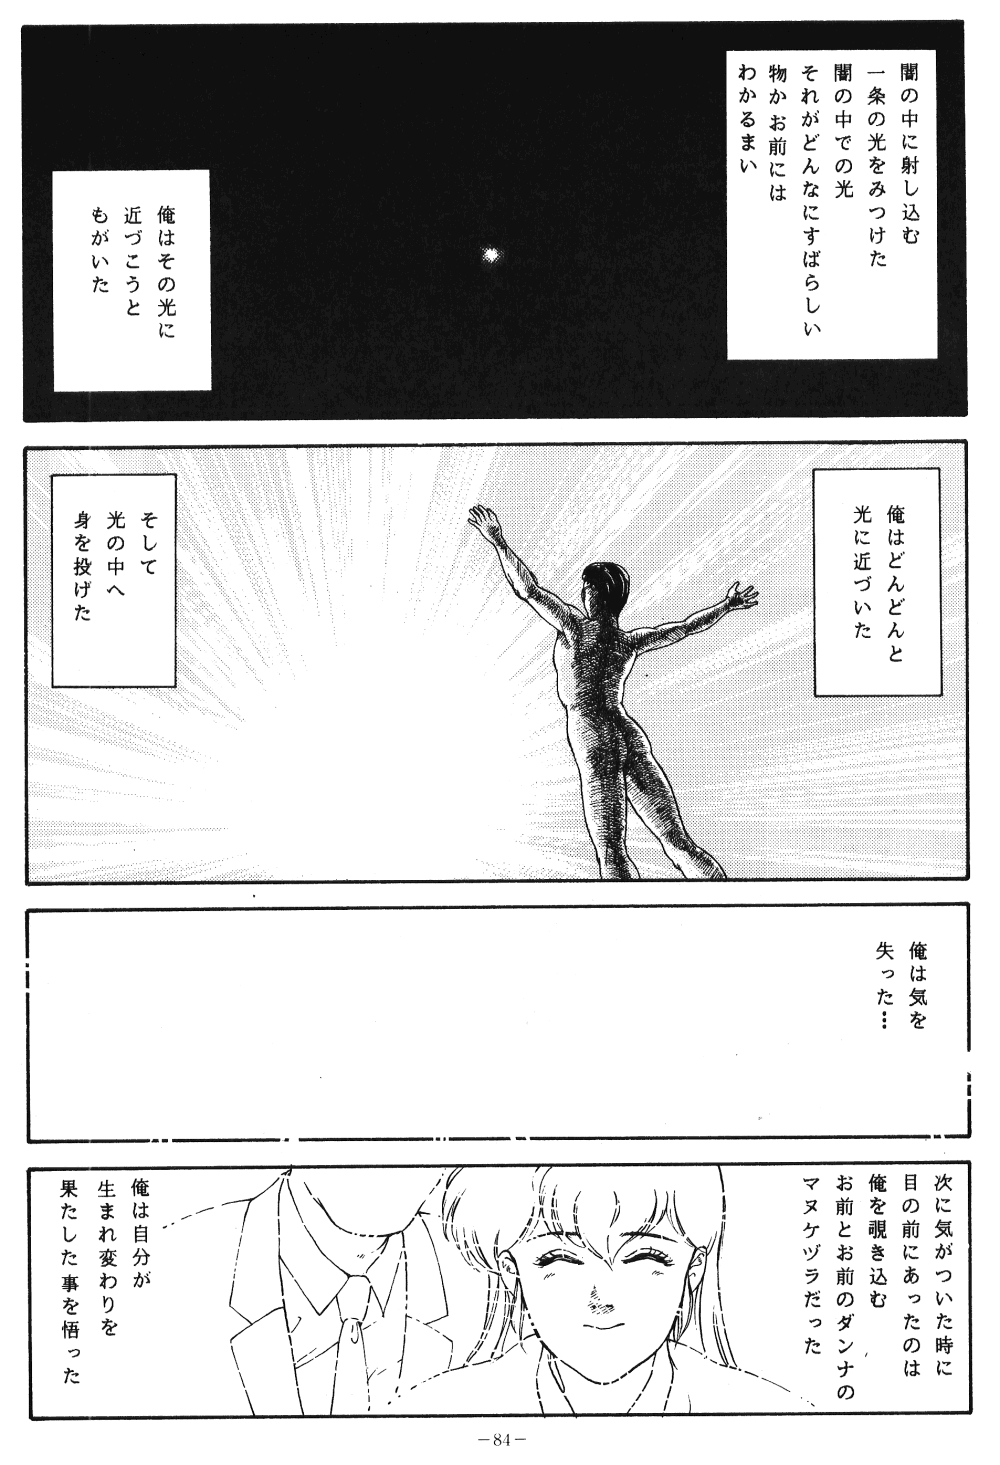 闇の中に射し込む
一条の光をみつけた
闇の中での光
それがどんなにすばらしい
物かお前には
わかるまい
俺はその光に
近づこうと
もがいた
俺はどんどんと
光に近づいた
そして
光の中へ
身を投げた
俺は気を
失った…
次に気がついた時に
目の前にあったのは
俺を覗き込む
お前とお前のダンナの
マヌケヅラだった
俺は自分が
生まれ変わりを
果たした事を悟った
－84－